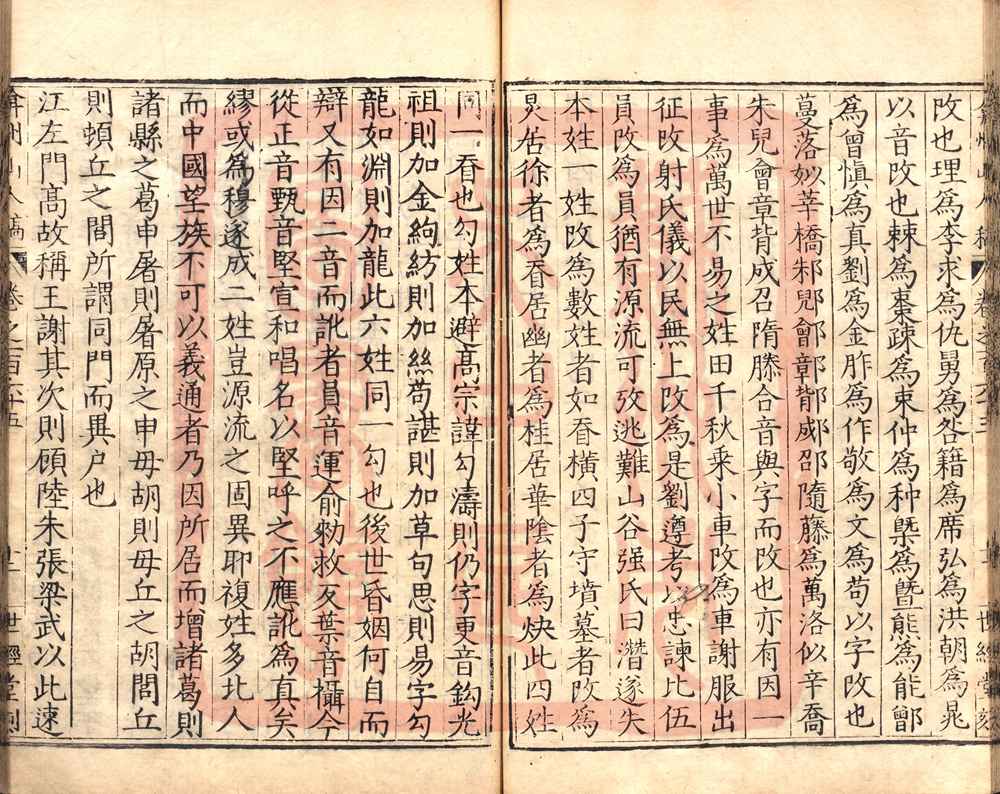 改也理為李求為仇男為咎籍為席弘為洪朝為晁
以音改也棘為棗疎為束仲為种槩為暨熊為能鄫
為曾慎為真劉為金胙為作敬為文為苟以字改也
蔓落妙莘橋邾郳鄶鄣鄁郕邵隨藤為萬洛似辛喬
朱兒會章背成召隋滕合音與字而改也亦有因一
事為萬世不易之姓田千秋乘小車改為車謝服出
征改射氏儀以民無上改為是劉遵考以忠諫比伍
員改為員猶有源流可攷逃難山谷强氏曰潛遂失
本姓一姓改為數姓者如昋橫四子守墳墓者改為
炅居徐者為昋居幽者為桂居華陰者為炔此四姓
同一昋也勾姓本避高宗諱勾濤則仍字更音鈎光
祖則加金絇紡則加絲苟諶則加草句思則易字勾
龍如淵則加龍此六姓同一勾也後世昏姻何自而
辯又有因二音而訛者員音運俞勑救攵葉音攝今
從正音甄音堅宣和唱名以堅呼之不應訛為真矣
繆或為穆遂成二姓豈源流之固異耶複姓多北人
而中國望族不可以義通者乃因所居而增諸葛則
諸縣之葛申屠則屠原之申毋胡則毋丘之胡閭丘
則頓丘之閭所謂同門而異户也
江左門高故稱王謝其次則顧陸朱張梁武以此速
弇州山人稿
卷之百六十五
十二
世經堂刻